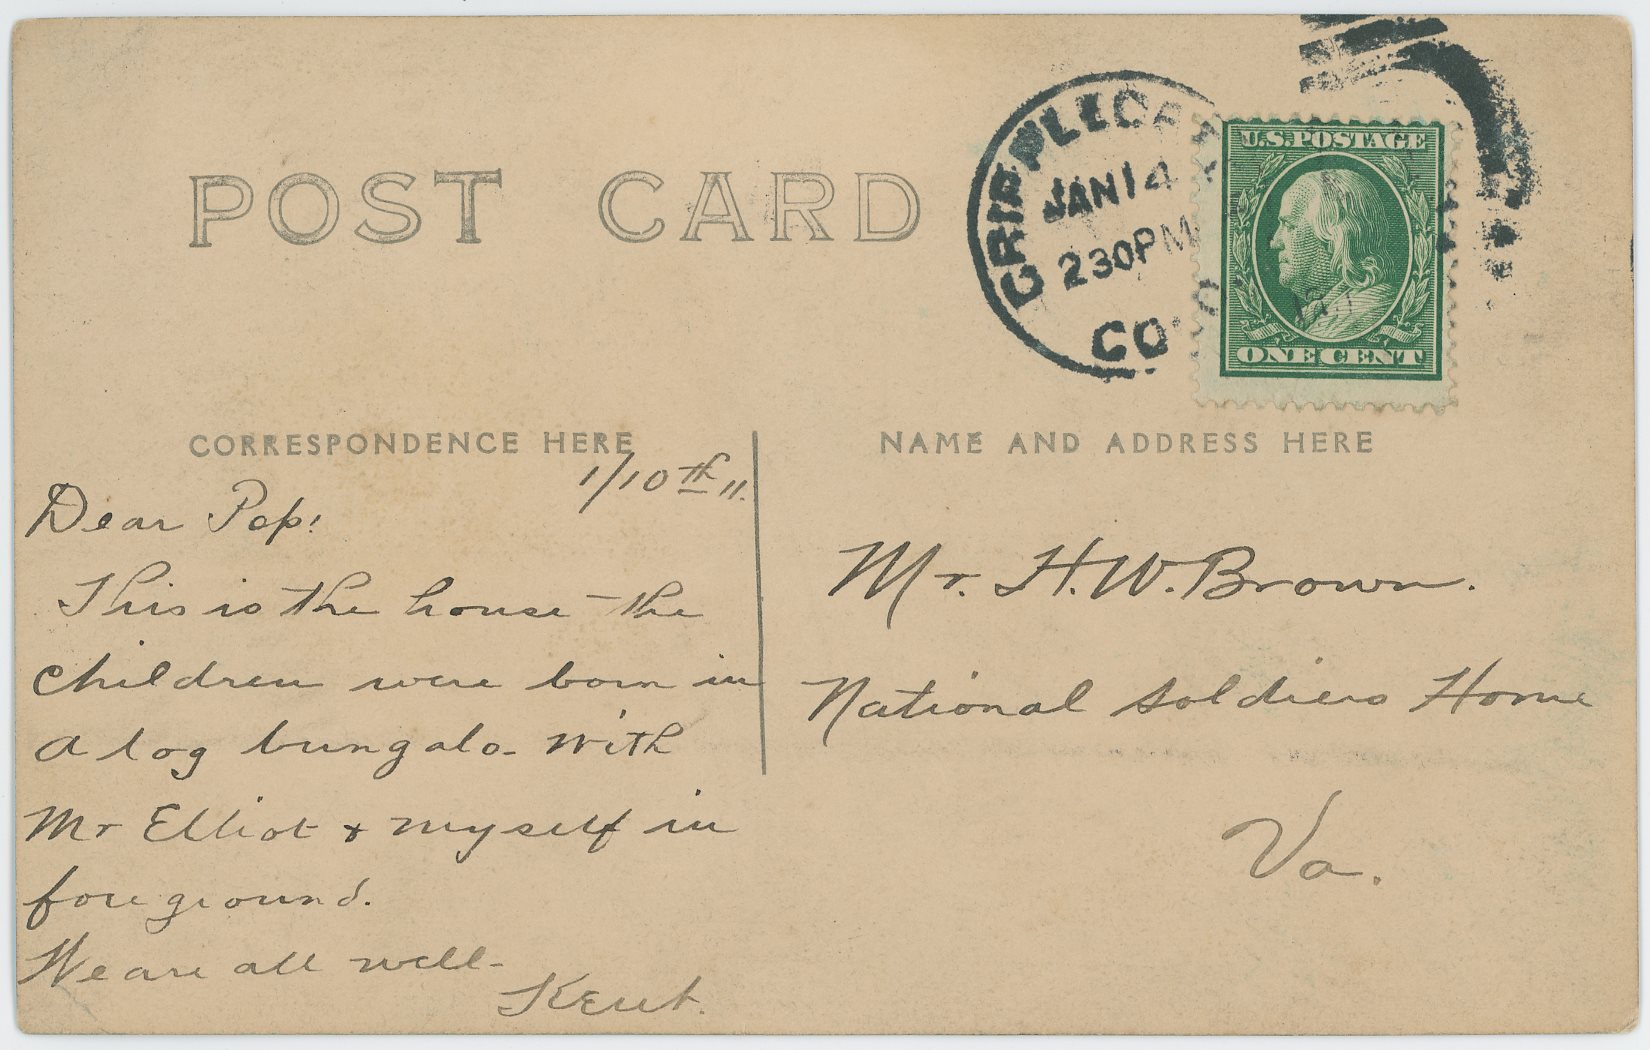 POST CARD
CRIPPLE CR
JAN 14
230PM
CO
U.S. POSTAGE
ONE CENT
CORRESPONDENCE HERE
NAME AND ADDRESS HERE
1/10th 11.
Dear Pop!
This is the house the
children were born in
a log bungalo- with
Mr Elliot & myself in
foreground.
We are all well-
Kent.
Mr. H. W. Brown.
National Soldiers Home
Va.